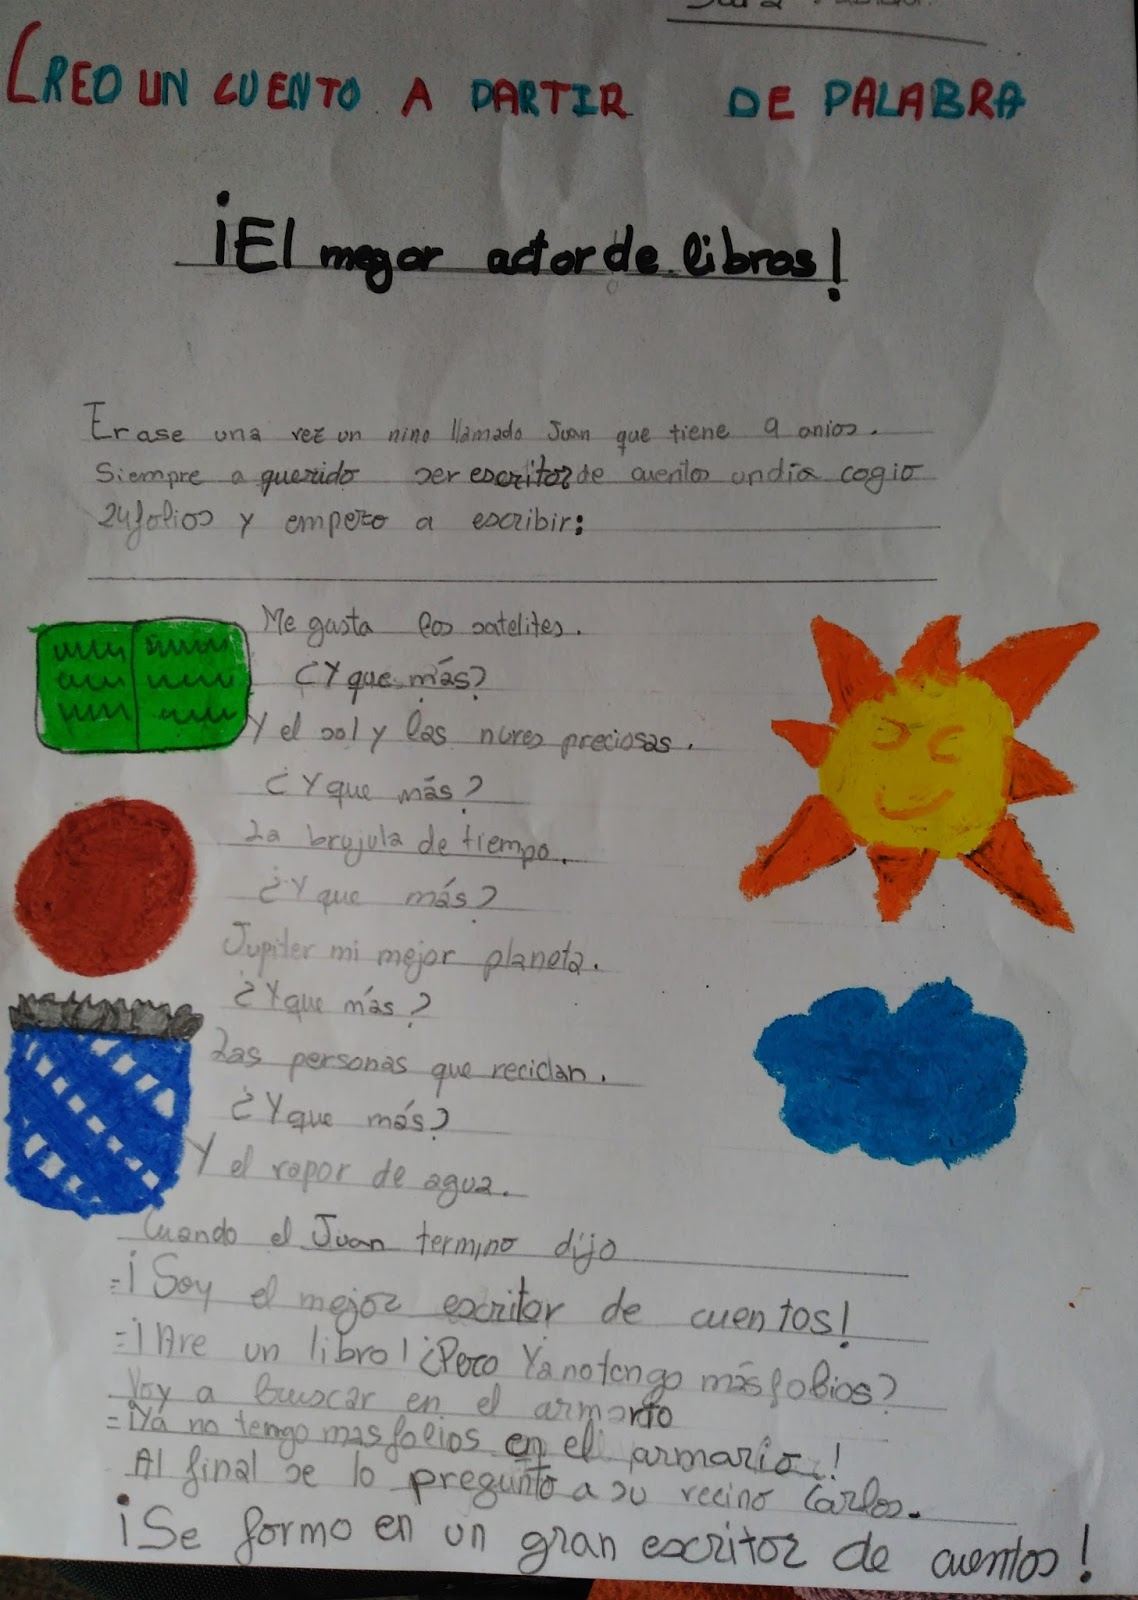 CREO UN CUENTO A PARTIR DE PALABRA
¡El megor actor de libros!
Erase una vez un nino llamado Juan que tiene 9 anios.
Siempre a querido ser escritor de cuentos un dia cogio
24 folios y empezo a escribir:
Me gusta los satelites.
¿Y que más?
Y el sol y las nuves preciosas.
¿Y que más?
La brujula de tiempo.
¿Y que más?
Jupiter mi mejor planeta.
¿Y que más?
Las personas que reciclan.
¿Y que más?
Y el vapor de agua.
Cuando el Juan termino dijo
=¡Soy el mejor escritor de cuentos!
=¡Are un libro! ¿Pero Ya no tengo más folios?
Voy a buscar en el armario
=¡Ya no tengo mas folios en el armario!
Al final se lo pregunto a su vecino Carlos.
¡Se formo en un gran escritor de cuentos!